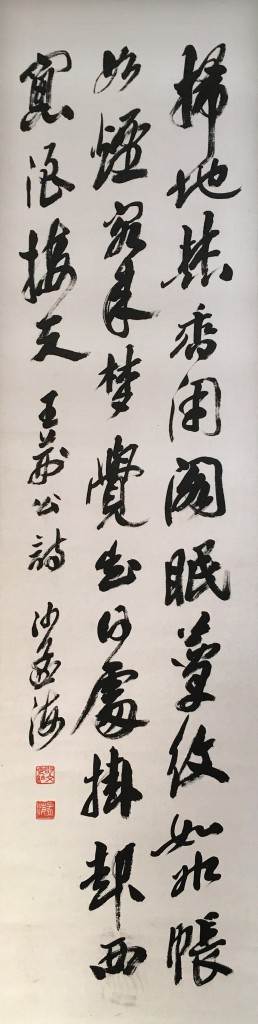 掃地焚香閉閣眠簟紋如水帳
如煙客來夢覺知何處掛起西
窗浪接天 王荆公詩 沙孟海